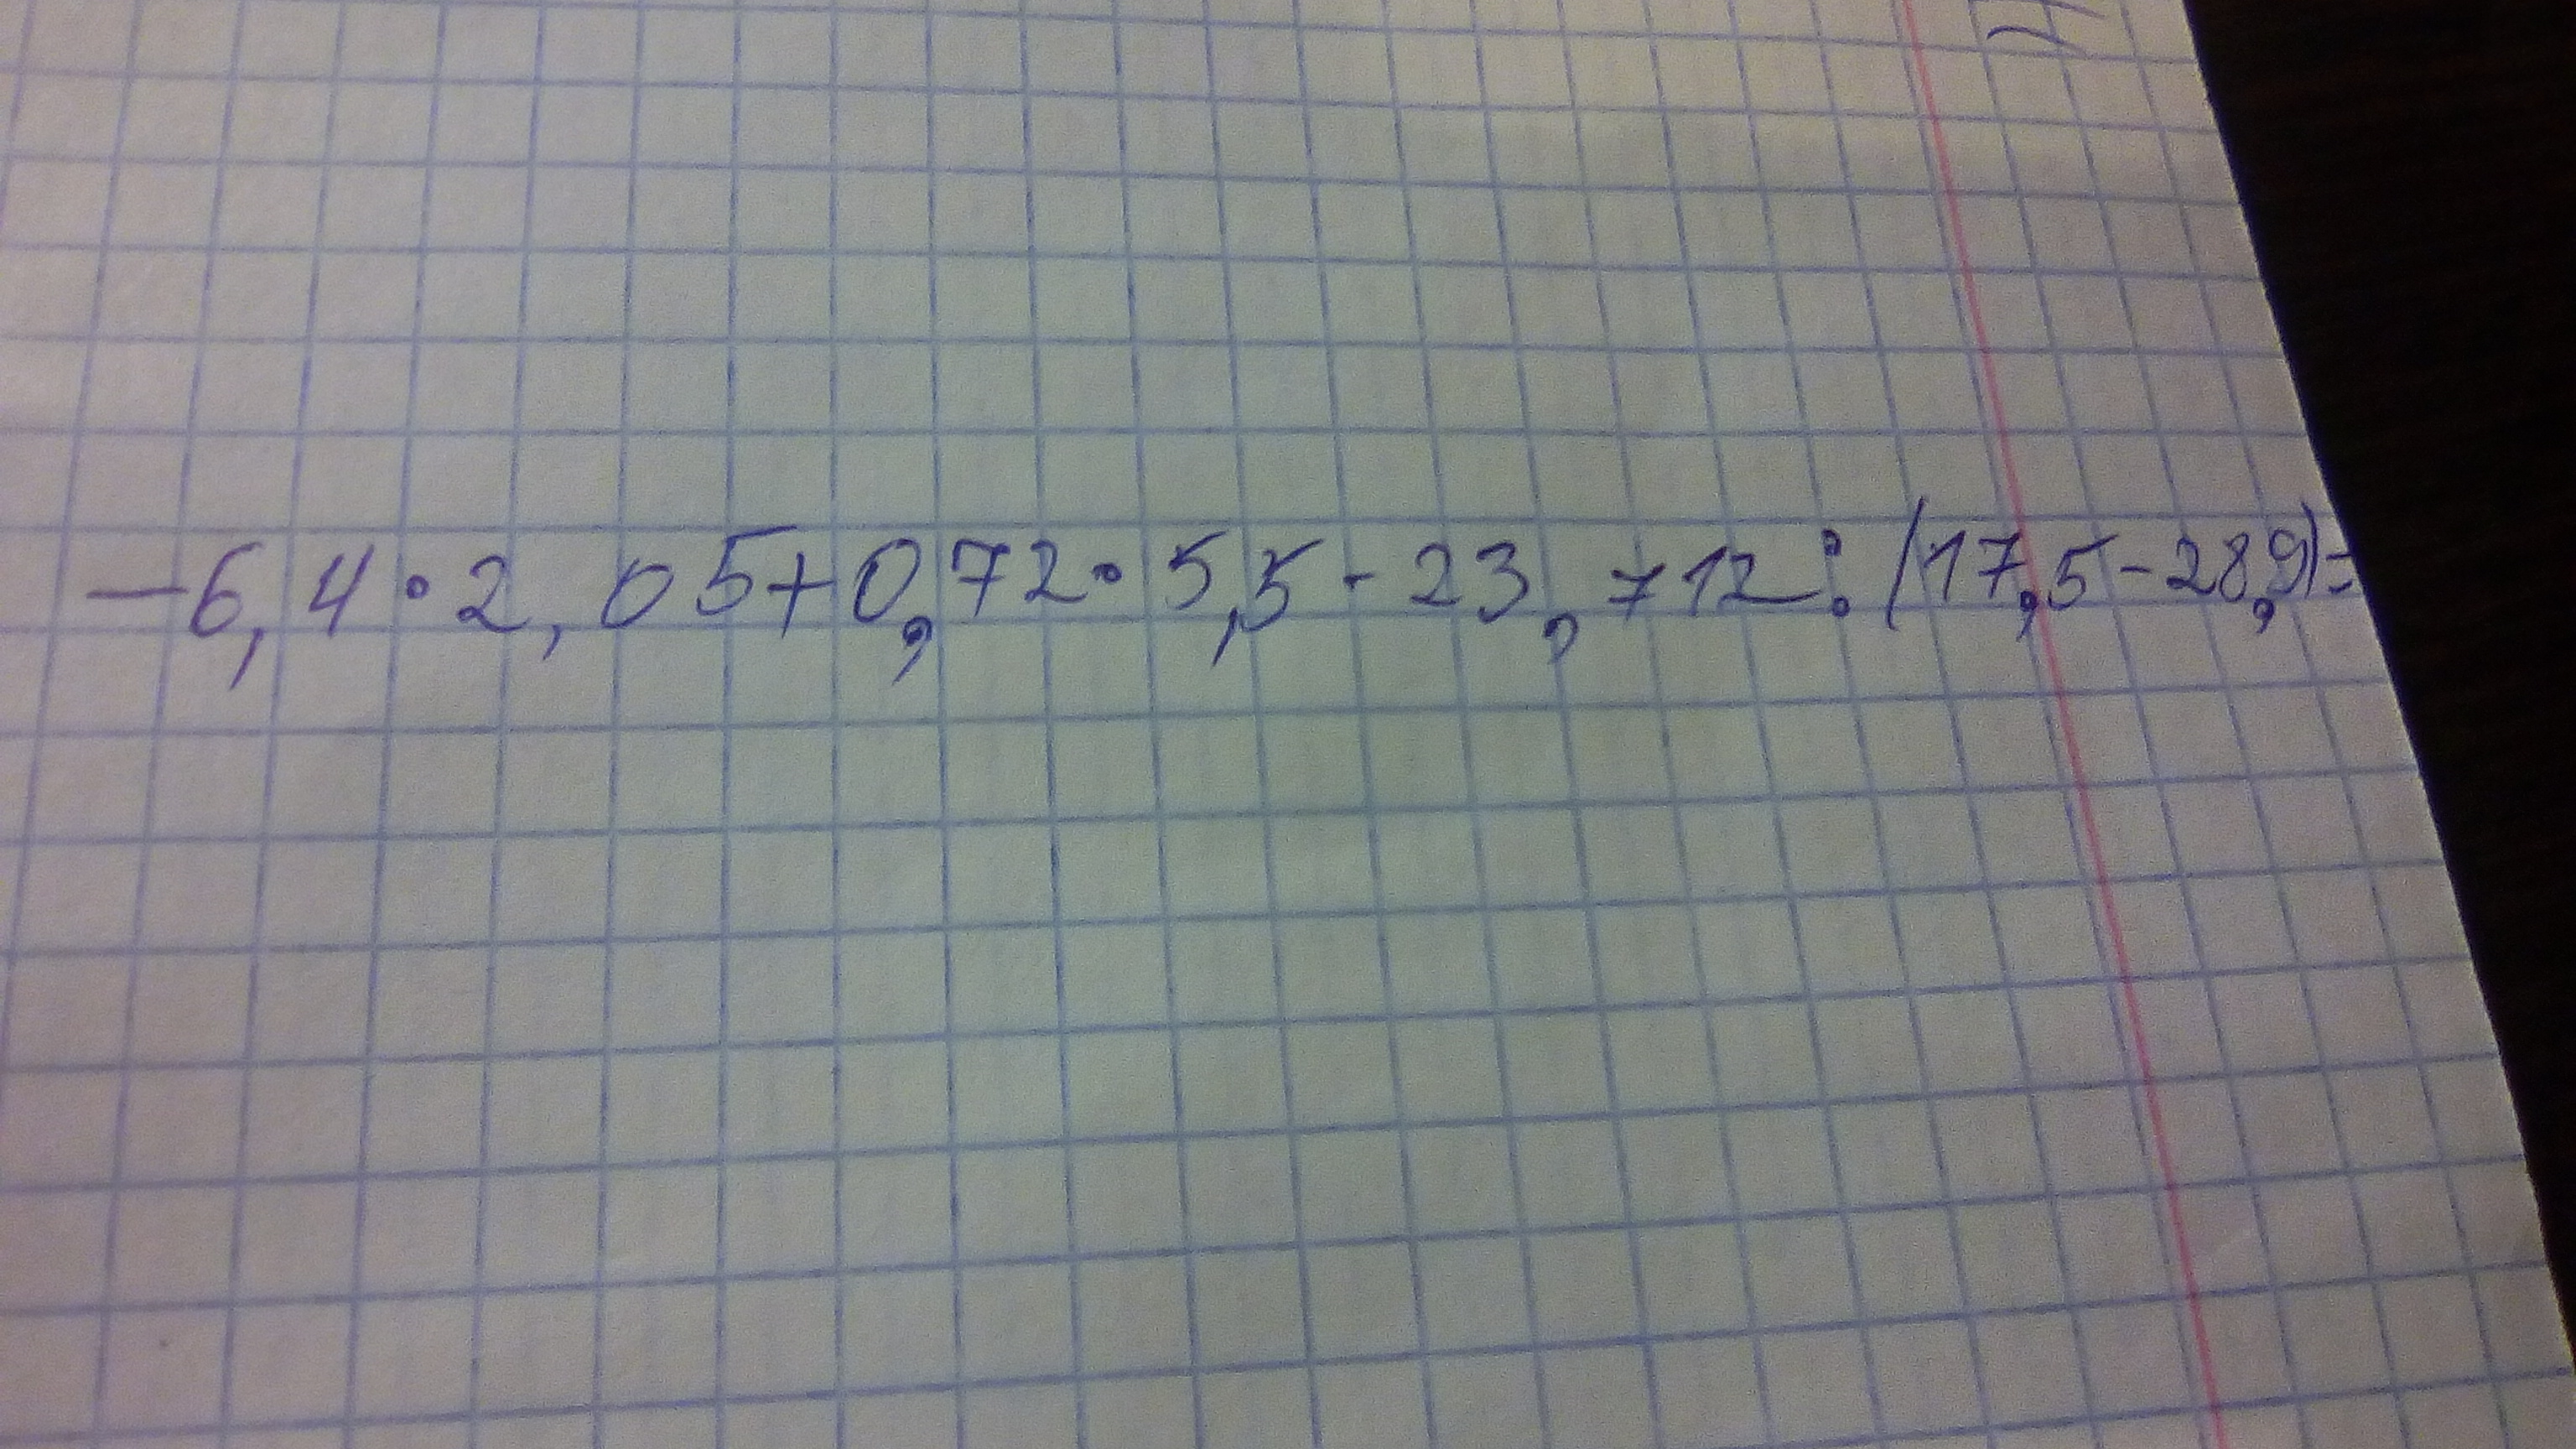 -6,4•2,05+0,72•5,5-23,712:(17,5-28,9)=